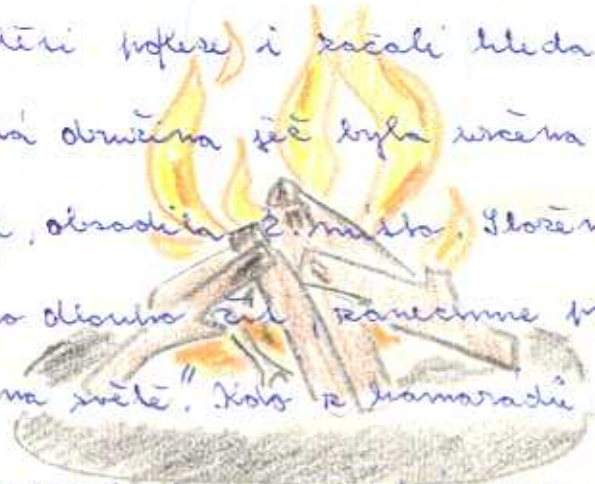 i začali hleda
ná družina jež byla určena
, obsadila 2. místo. Slože
dlouho žil, zanechme p
na světě". Kdo z kamarádů